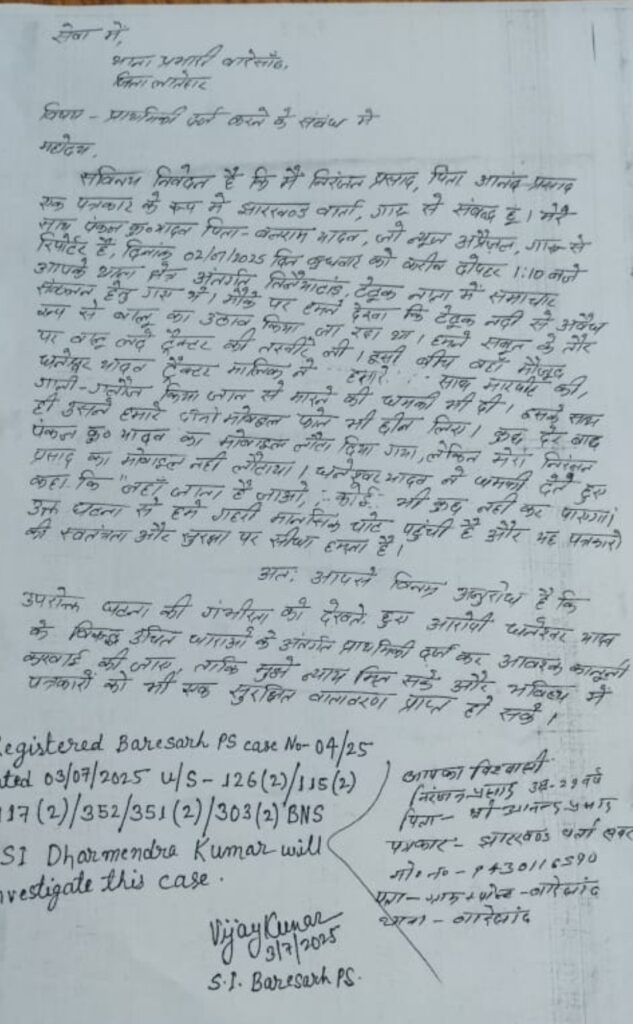 सेवा में,
थाना प्रभारी बारेसाँढ,
जिला लातेहार
विषय - प्राथमिकी दर्ज करने के संबंध में
महोदय,
सविनय निवेदन है कि मैं निरंजन प्रसाद, पिता आनंद प्रसाद
एक पत्रकार के रूप में झारखण्ड वार्ता, गारू से संबद्ध हूं। मेरे
साथ पंकज कु० यादव पिता- बलराम यादव, जो न्यूज अप्रैजल, गारू से
रिपोर्टर है, दिनांक 02/07/2025 दिन बुधवार को करीब दोपहर 1:10 बजे
आपके थाना क्षेत्र अंतर्गत तिलैयाटांड़, टेटूक नाला में समाचार
संकलन हेतु गए थे। मौके पर हमने देखा कि टेटूक नदी से अवैध
रूप से बालू का उठाव किया जा रहा था। हमने सबूत के तौर
पर बालू लदे ट्रैक्टर की तस्वीरें ली। इसी बीच वहाँ मौजूद
धनेश्वर यादव ट्रैक्टर मालिक ने हमारे साथ मारपीट की,
गाली-गलौज किया जान से मारने की धमकी भी दी। इसके साथ
ही उसने हमारे दोनों मोबाइल फोन भी छीन लिए। कुछ देर बाद
पंकज कु० यादव का मोबाइल लौटा दिया गया, लेकिन मेरा निरंजन
प्रसाद का मोबाइल नहीं लौटाया। धनेश्वर यादव ने धमकी देते हुए
कहा कि "जहाँ जाना है जाओ, कोई भी कुछ नहीं कर पाएगा।
उक्त घटना से हमें गहरी मानसिक चोट पहुंची है और यह पत्रकारों
की स्वतंत्रता और सुरक्षा पर सीधा हमला है।
अत: आपसे विनम्र अनुरोध है कि
उपरोक्त घटना की गंभीरता को देखते हुए आरोपी धनेश्वर यादव
के विरुद्ध उचित धाराओं के अंतर्गत प्राथमिकी दर्ज कर आवश्यक कानूनी
करवाई की जाए, ताकि मुझे न्याय मिल सके और भविष्य में
पत्रकारों को भी एक सुरक्षित वातावरण प्राप्त हो सके।
egistered Baresarh PS case No- 04/25
ted 03/07/2025 U/S- 126(2)/115(2)
17(2)/352/351(2)/303(2) BNS
SI Dharmendra Kumar will
nvestigate this case.
Vijay Kumar
3/7/2025
S.I. Baresarh PS.
आपका विश्वासी
निरंजन प्रसाद उम्र-29 वर्ष
पिता- श्री आनन्द प्रसाद
पत्रकार- झारखण्ड वार्ता
मो० नं०- 9430116590
पता- ग्राम + पोस्ट- बारेसाँढ
थाना- बारेसाँढ